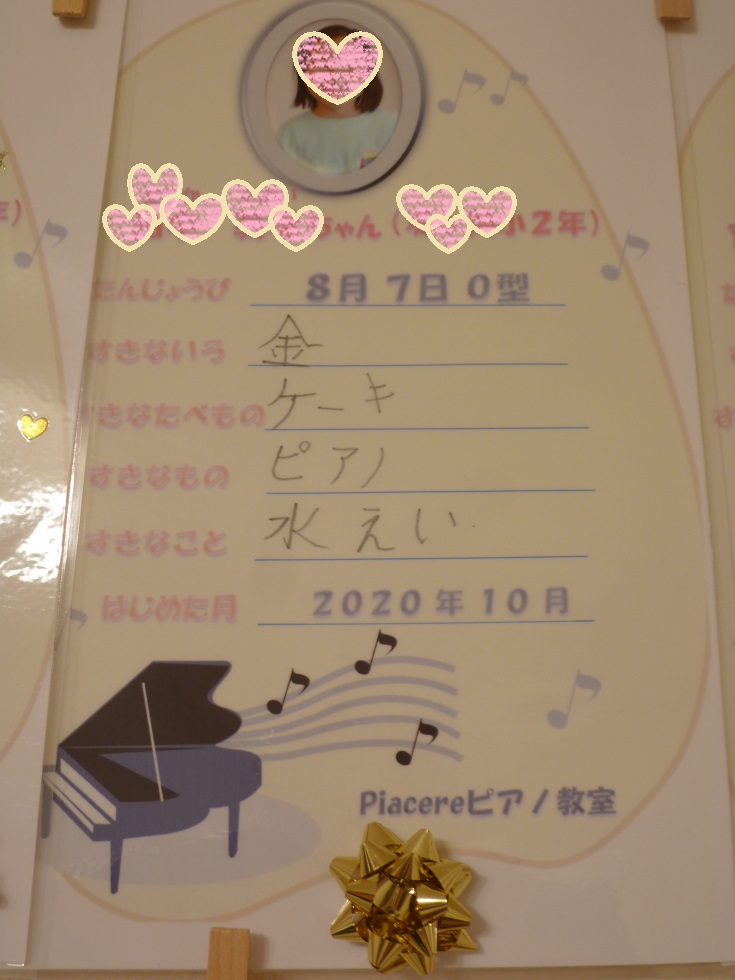 ちゃん（ 小２年）
たんじょうび 8月 7日 O型
すきないろ 金
すきなたべもの ケーキ
すきなもの ピアノ
すきなこと 水えい
はじめた月 2020年10月
Piacereピアノ教室
年）